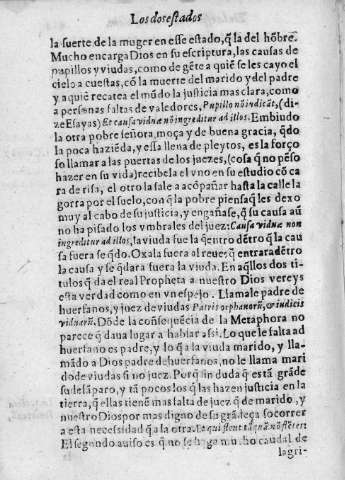 Los dos estados
la suerte de la muger en esse estado, q̃ la del hõbre.
Mucho encarga Dios en su escriptura, las causas de
pupillos y viudas, como de gẽte a quiẽ se les cayo el
cielo a cuestas, cõ la muerte del marido y del padre
y a quiẽ recatea el mũdo la justicia mas clara, como
a personas faltas de valedores, Pupillo nõ indicãt, (di-
ze Esayas) Et causa viduæ nõ ingreditur ad illos. Embiudo
la otra pobre señora, moça y de buena gracia, q̃do
la poca haziẽda, y essa llena de pleytos, es la forço
so llamar a las puertas de los juezes, (cosa q̃ no pẽso
hazer en su vida) recibela el vno en su estudio cõ ca
ra de risa, el otro la sale a acõpañar hasta la calle la
gorra por el suelo, con q̃ la pobre piensa q̃ les dexo
muy al cabo de su justicia, y engañase, q̃ su causa aũ
no ha pisado los vmbrales del juez: Causa viduæ non
ingreditur ad illos, la viuda fue la q̃ entro dẽtro q̃ la cau
sa fuera se q̃do. Oxala fuera al reues, q̃ entrara dẽtro
la causa y se q̃dara fuera la viuda. En aq̃llos dos ti-
tulos q̃ da el real Propheta a nuestro Dios vereys
esta verdad como en vn espejo. Llamale padre de
huerfanos, y juez de viudas Patris orphanorũ, & iudicis
viduarũ. Dõde la consequẽcia de la Metaphora no
parece q̃ daua lugar a hablar assi. Lo que le falta al
huerfano es padre, y lo q̃ a la viuda marido, y lla-
mãdo a Dios padre de huerfanos, no le llama mari
do de viudas sino juez. Porq̃ sin duda q̃ esta grãde
su desãparo, y tã pocos los q̃ las hazen justicia en la
tierra, q̃ ellas tienẽ mas falta de juez q̃ de marido, y
nuestro Dios por mas digno de su grãdeça socorrer
a esta necesidad q̃ a la otra. Et qui flent tãquã nõ flẽtes
El segundo auiso es q̃ no se haga mucho caudal de
lagri-